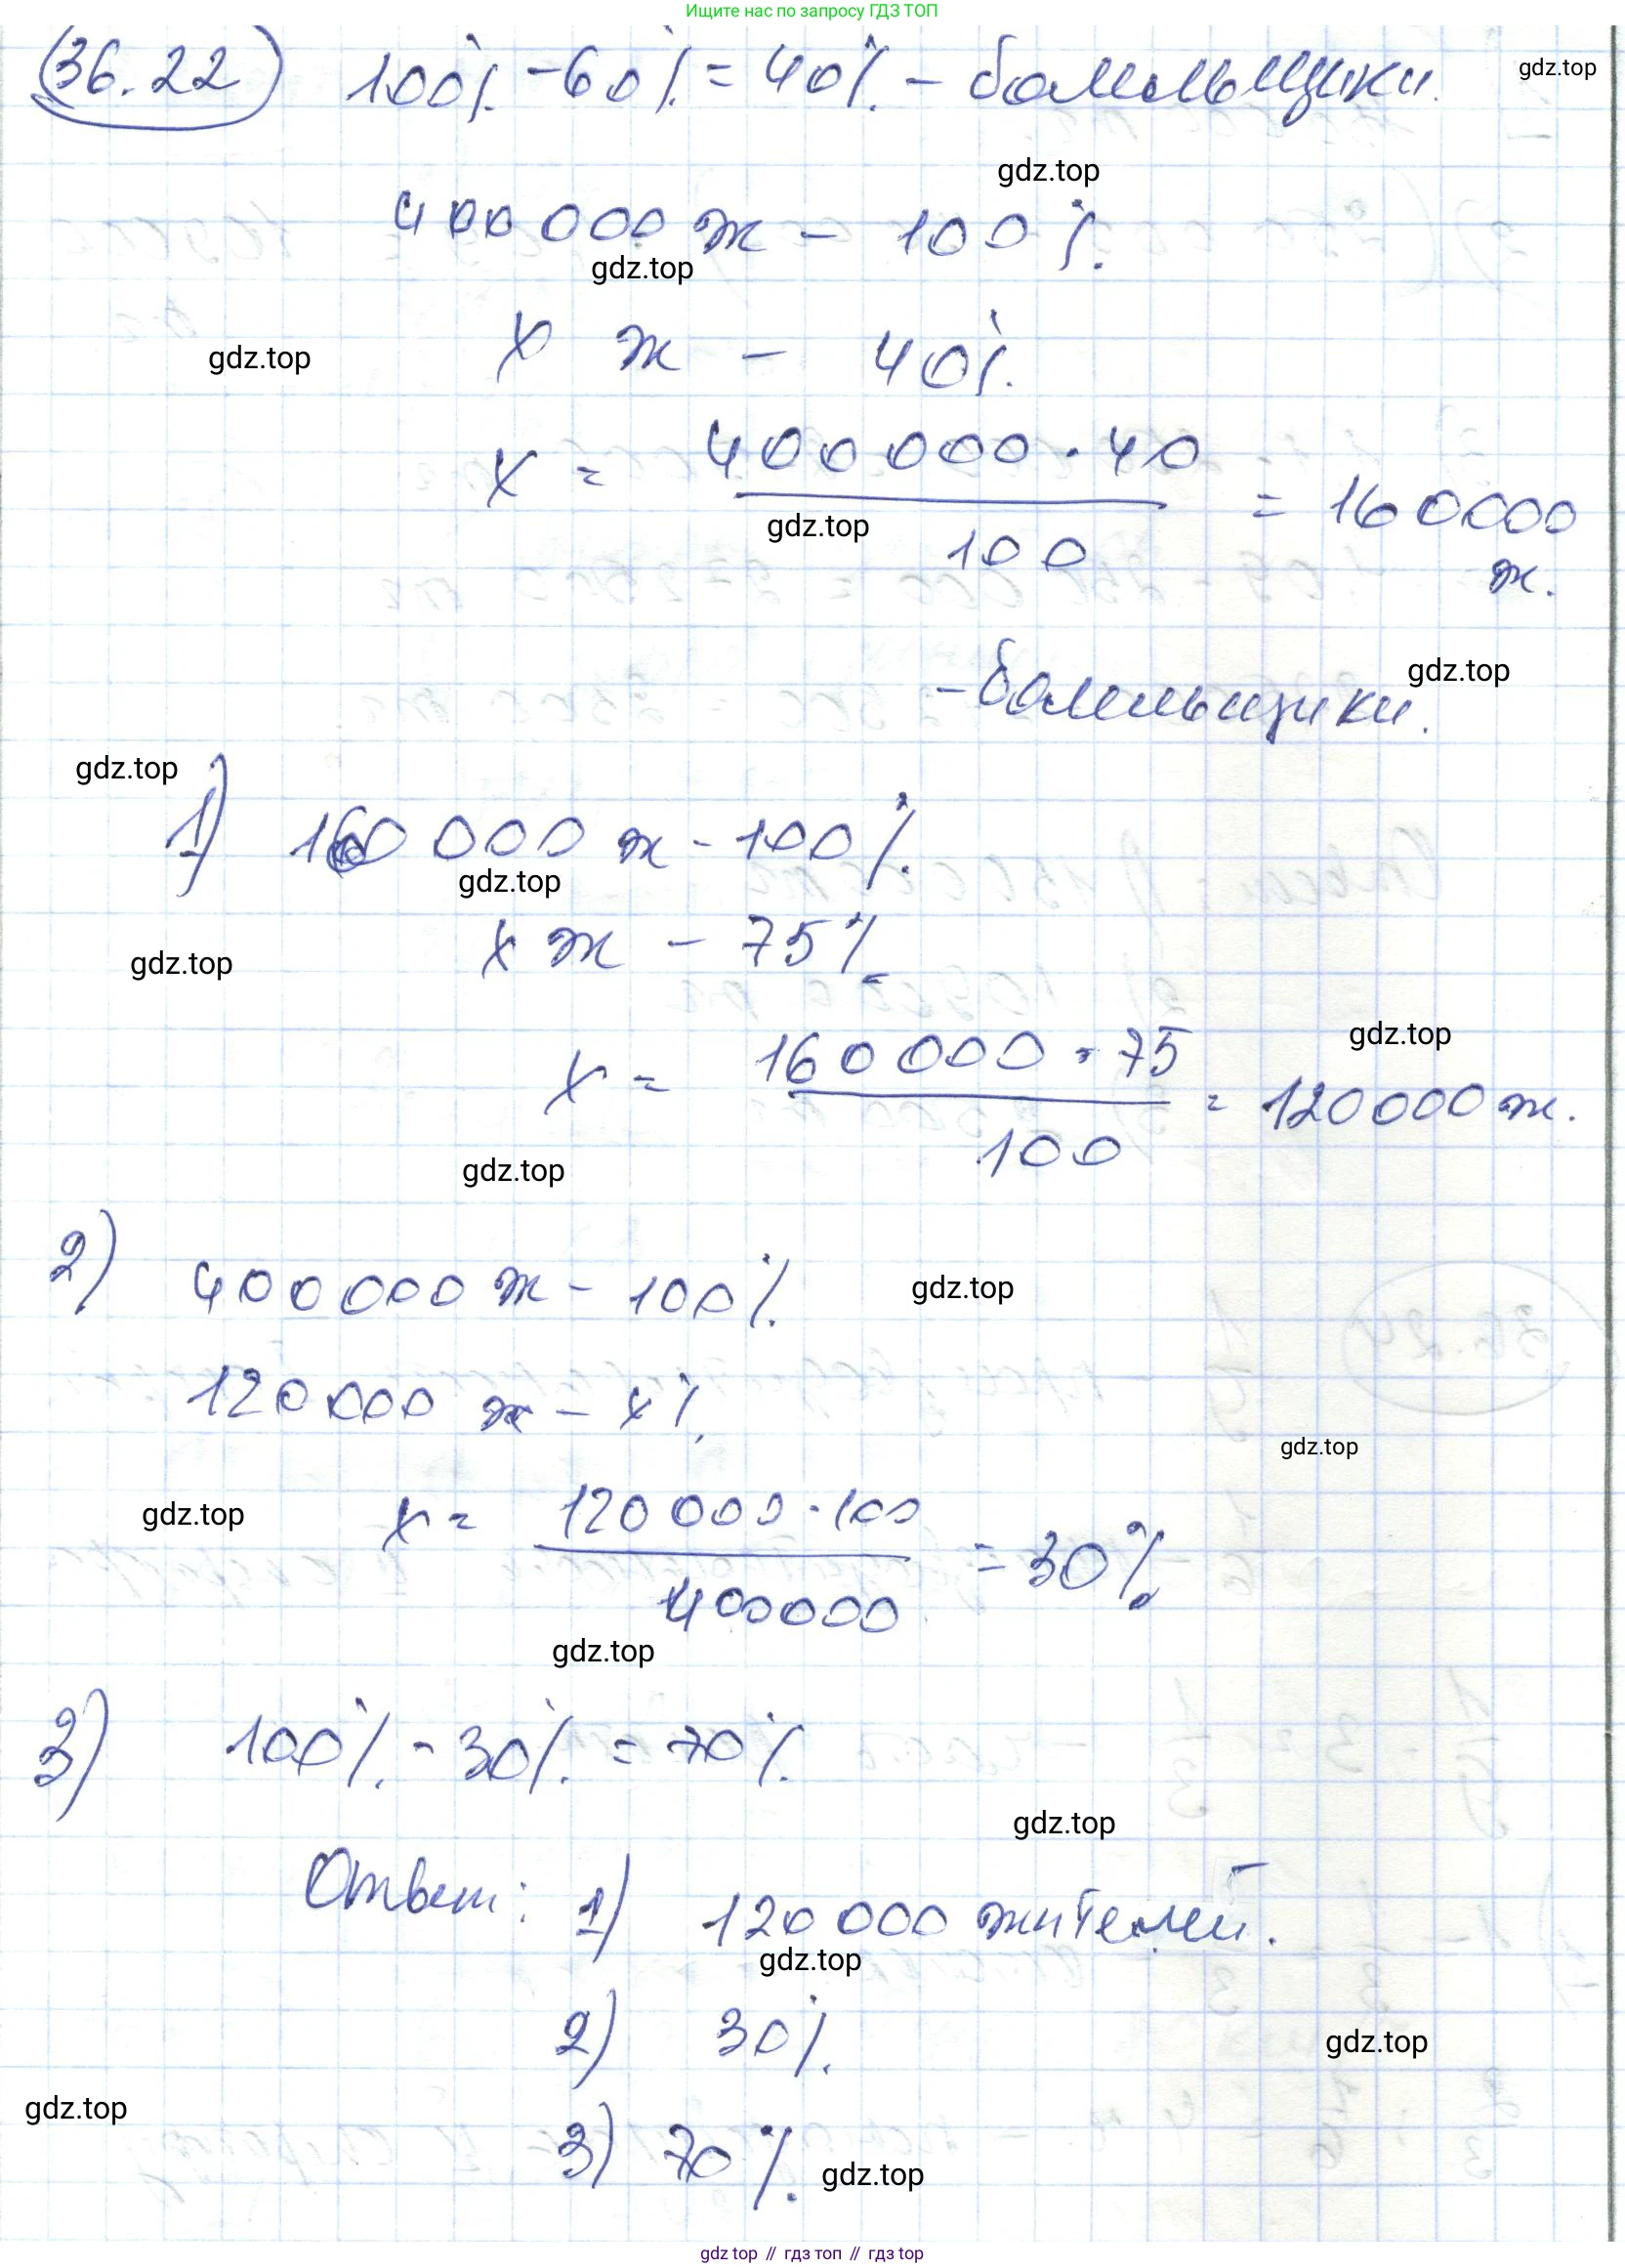 Ищите нас по запросу ГДЗ ТОП
36.22) 100% - 60% = 40% - болельщики.
gdz.top
gdz.top
400 000 ж - 100%.
gdz.top
x ж - 40%.
gdz.top
x = 400 000 · 40 / 100 = 160 000 ж.
gdz.top
- болельщики.
gdz.top
gdz.top
1) 160 000 ж - 100%.
gdz.top
x ж - 75%
gdz.top
x = 160 000 · 75 / 100 = 120 000 ж.
gdz.top
gdz.top
2) 400 000 ж - 100%.
gdz.top
120 000 ж - x%.
gdz.top
x = 120 000 · 100 / 400 000 = 30%
gdz.top
gdz.top
3) 100% - 30% = 70%.
gdz.top
Ответ: 1) 120 000 жителей.
gdz.top
2) 30%.
gdz.top
gdz.top
3) 70%.
gdz.top
gdz top // гдз топ // гдз top